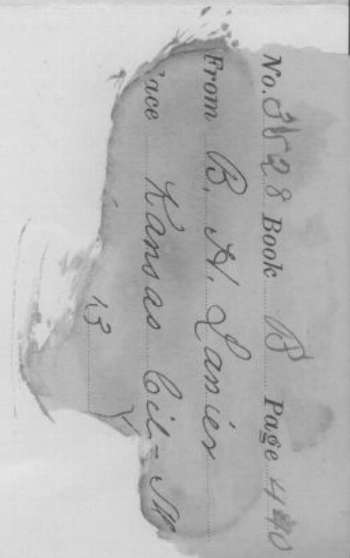 No. 3528 Book B Page 440
From B. H. Lanier
ace Kansas Cit
13